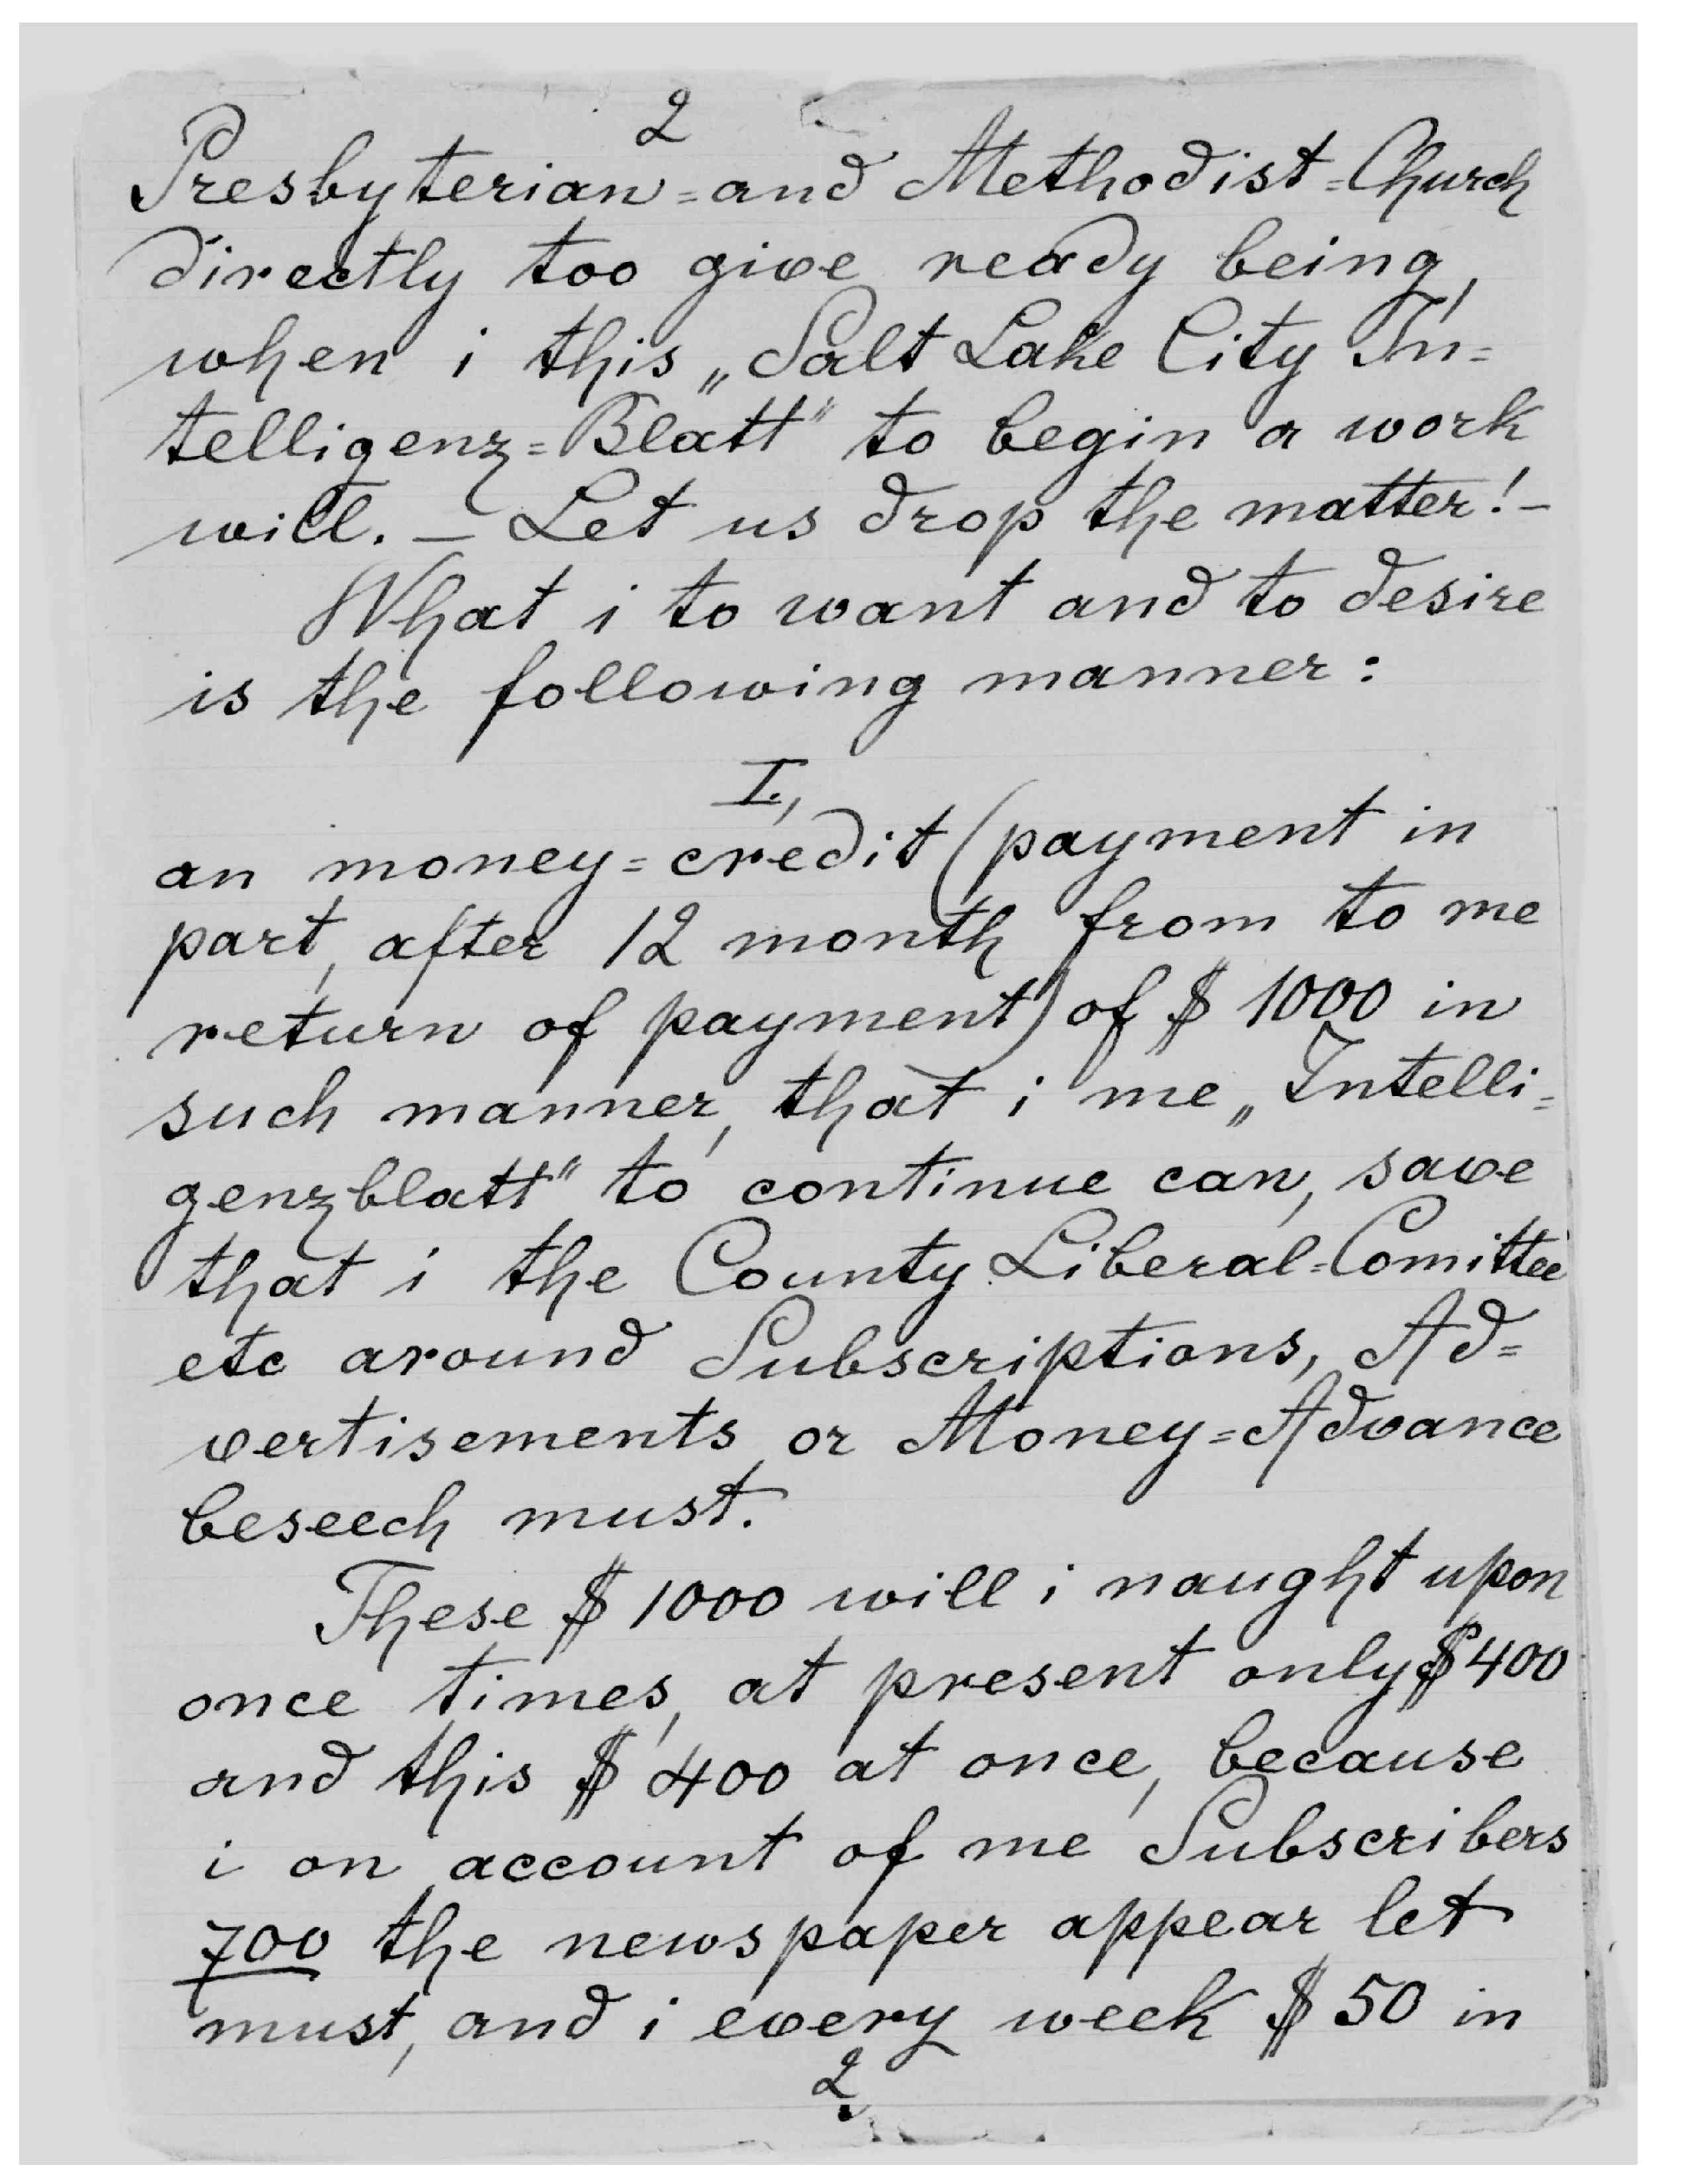 2
Presbyterian=and Methodist=Church
directly too give ready being,
when i this „Salt Lake City In=
telligenz=Blatt" to begin a work
will. — Let us drop the matter! –
What i to want and to desire
is the following manner:
I.,
an money=credit (payment in
part, after 12 month from to me
return of payment) of $ 1000 in
such manner, that i me „Intelli=
genzblatt" to continue can, save
that i the County Liberal=Comittee
etc around Subscriptions, Ad=
vertisements or Money=Advance
beseech must.
These $ 1000 will i naught upon
once times, at present only $400
and this $ 400 at once, because
i on account of me Subscribers
700 the newspaper appear let
must, and i every week $ 50 in
2.